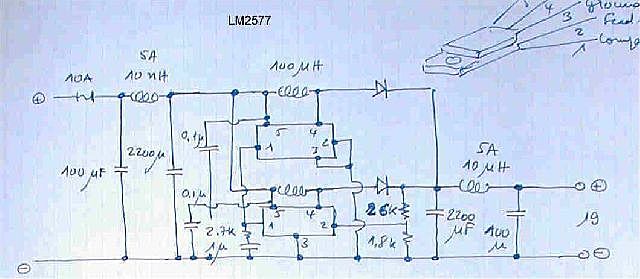 LM2577
4
3
2
1
Ground
Feed
Comp
5A
10A
10 µH
100 µH
100 µF
2200 µ
0,1µ
5
4
1
2
3
0,1µ
5
4
2
3
2.7k
1µ
26k
1,8k
2200
µF
5A
10 µH
100
µ
19